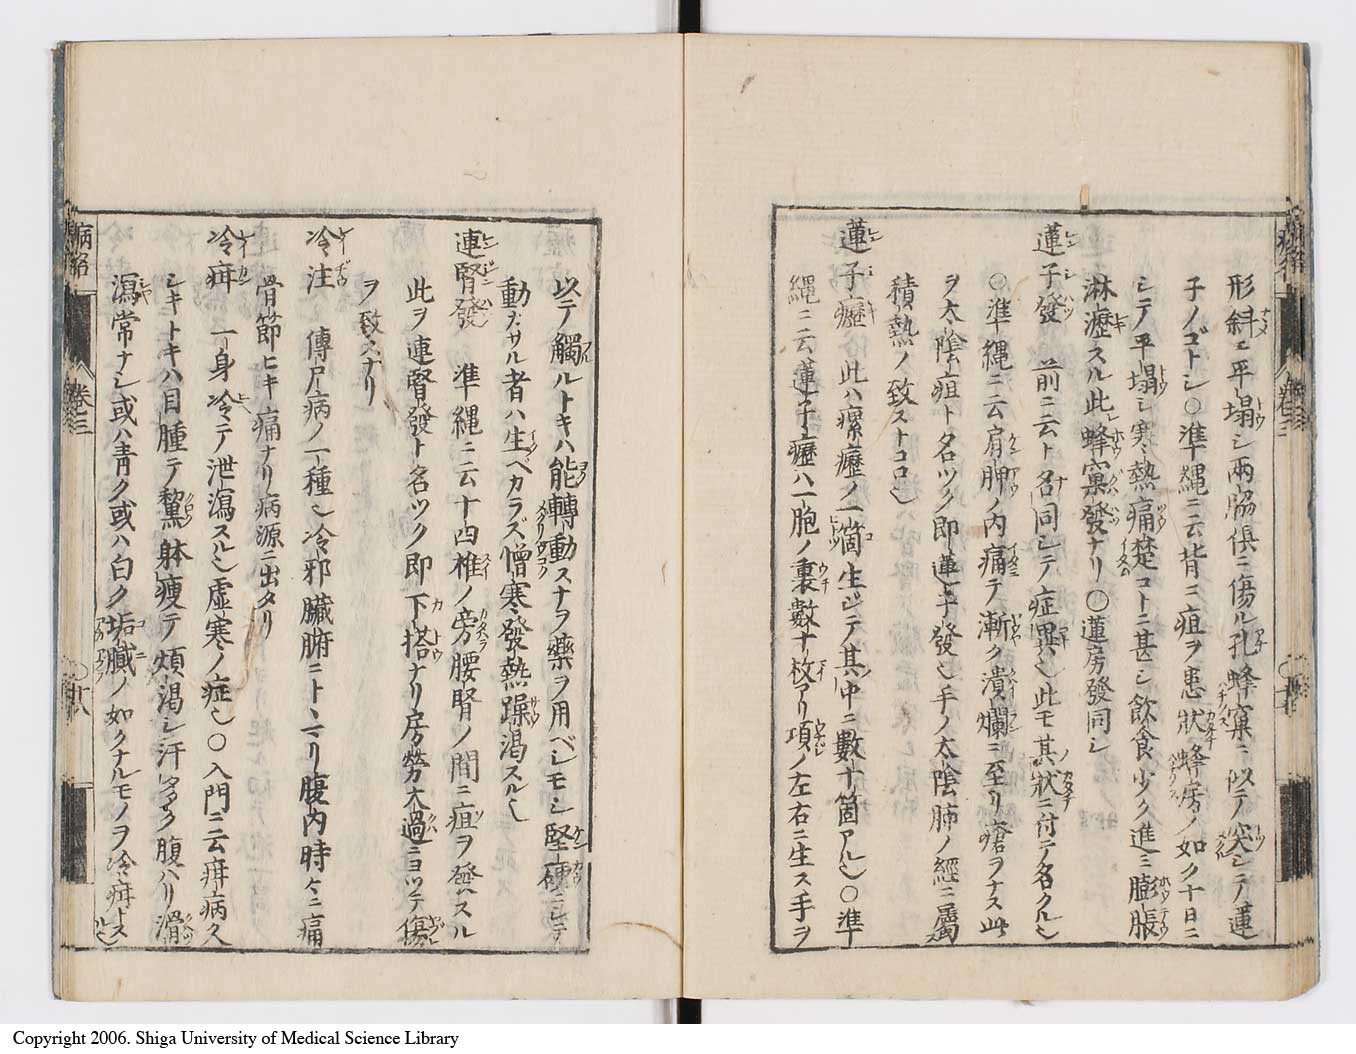 形斜ニ平塌シ兩脇倶ニ傷ル孔蜂窠ニ似テ突シテ蓮
子ノゴトシ○準縄ニ云背ニ疽ヲ患狀蜂房ノ如ク十日ニ
シテ平塌シ寒熱痛楚コトニ甚シ飲食少ク進ミ膨脹
淋瀝スル此蜂窠發ナリ○蓮房發同シ
蓮子發 前ニ云ト名同シテ症異也此モ其狀ニ付テ名クル也
○準縄ニ云肩胛ノ内痛テ漸ク潰爛ニ至リ瘡ヲナス此
ヲ太陰疽ト名ツク即蓮子發也手ノ太陰肺ノ經ニ屬
積熱ノ致ストコロ也
蓮子癧 俗 此ハ瘰癧ノ一箇生ジテ其中ニ數十箇アル也○準
縄ニ云蓮子癧ハ一胞ノ裏數十枚アリ項ノ左右ニ生ス手ヲ
以テ觸ルトキハ能轉動スナヲ藥ヲ用ベシモシ堅硬ニシテ
動ザル者ハ生ベカラズ憎寒發熱躁渇スル也
連腎發 準縄ニ云十四椎ノ旁腰腎ノ間ニ疽ヲ發スル
此ヲ連腎發ト名ツク即下搭ナリ房勞太過ニヨツテ傷
ヲ致スナリ
冷注 傳尸病ノ一種也冷邪臟腑ニトヾマリ腹内時々ニ痛
骨節ヒキ痛ナリ病源ニ出タリ
冷疳 一身冷テ泄瀉スル也虚寒ノ症也○入門ニ云疳病久
シキトキハ目腫テ黧躰痩テ煩渇シ汗多ク腹ハリ滑
瀉常ナシ或ハ青ク或ハ白ク垢膩ノ如クナルモノヲ冷疳トス
病名
卷三
○廿八
Copyright 2006. Shiga University of Medical Science Library